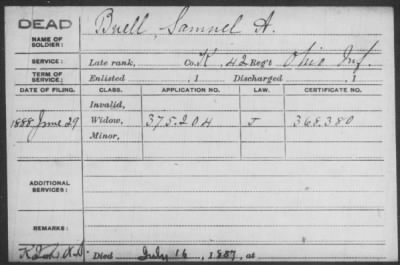 DEAD
NAME OF SOLDIER: Buell, Samuel A.
SERVICE: Late rank, Co. K, 42 Reg't Ohio Inf.
TERM OF SERVICE: Enlisted , 1 Discharged , 1
DATE OF FILING. CLASS. APPLICATION NO. LAW. CERTIFICATE NO.
Invalid,
1888 June 29 Widow, 375.204 J 368.380
Minor,
ADDITIONAL SERVICES:
REMARKS:
Died July 16, 1887, at